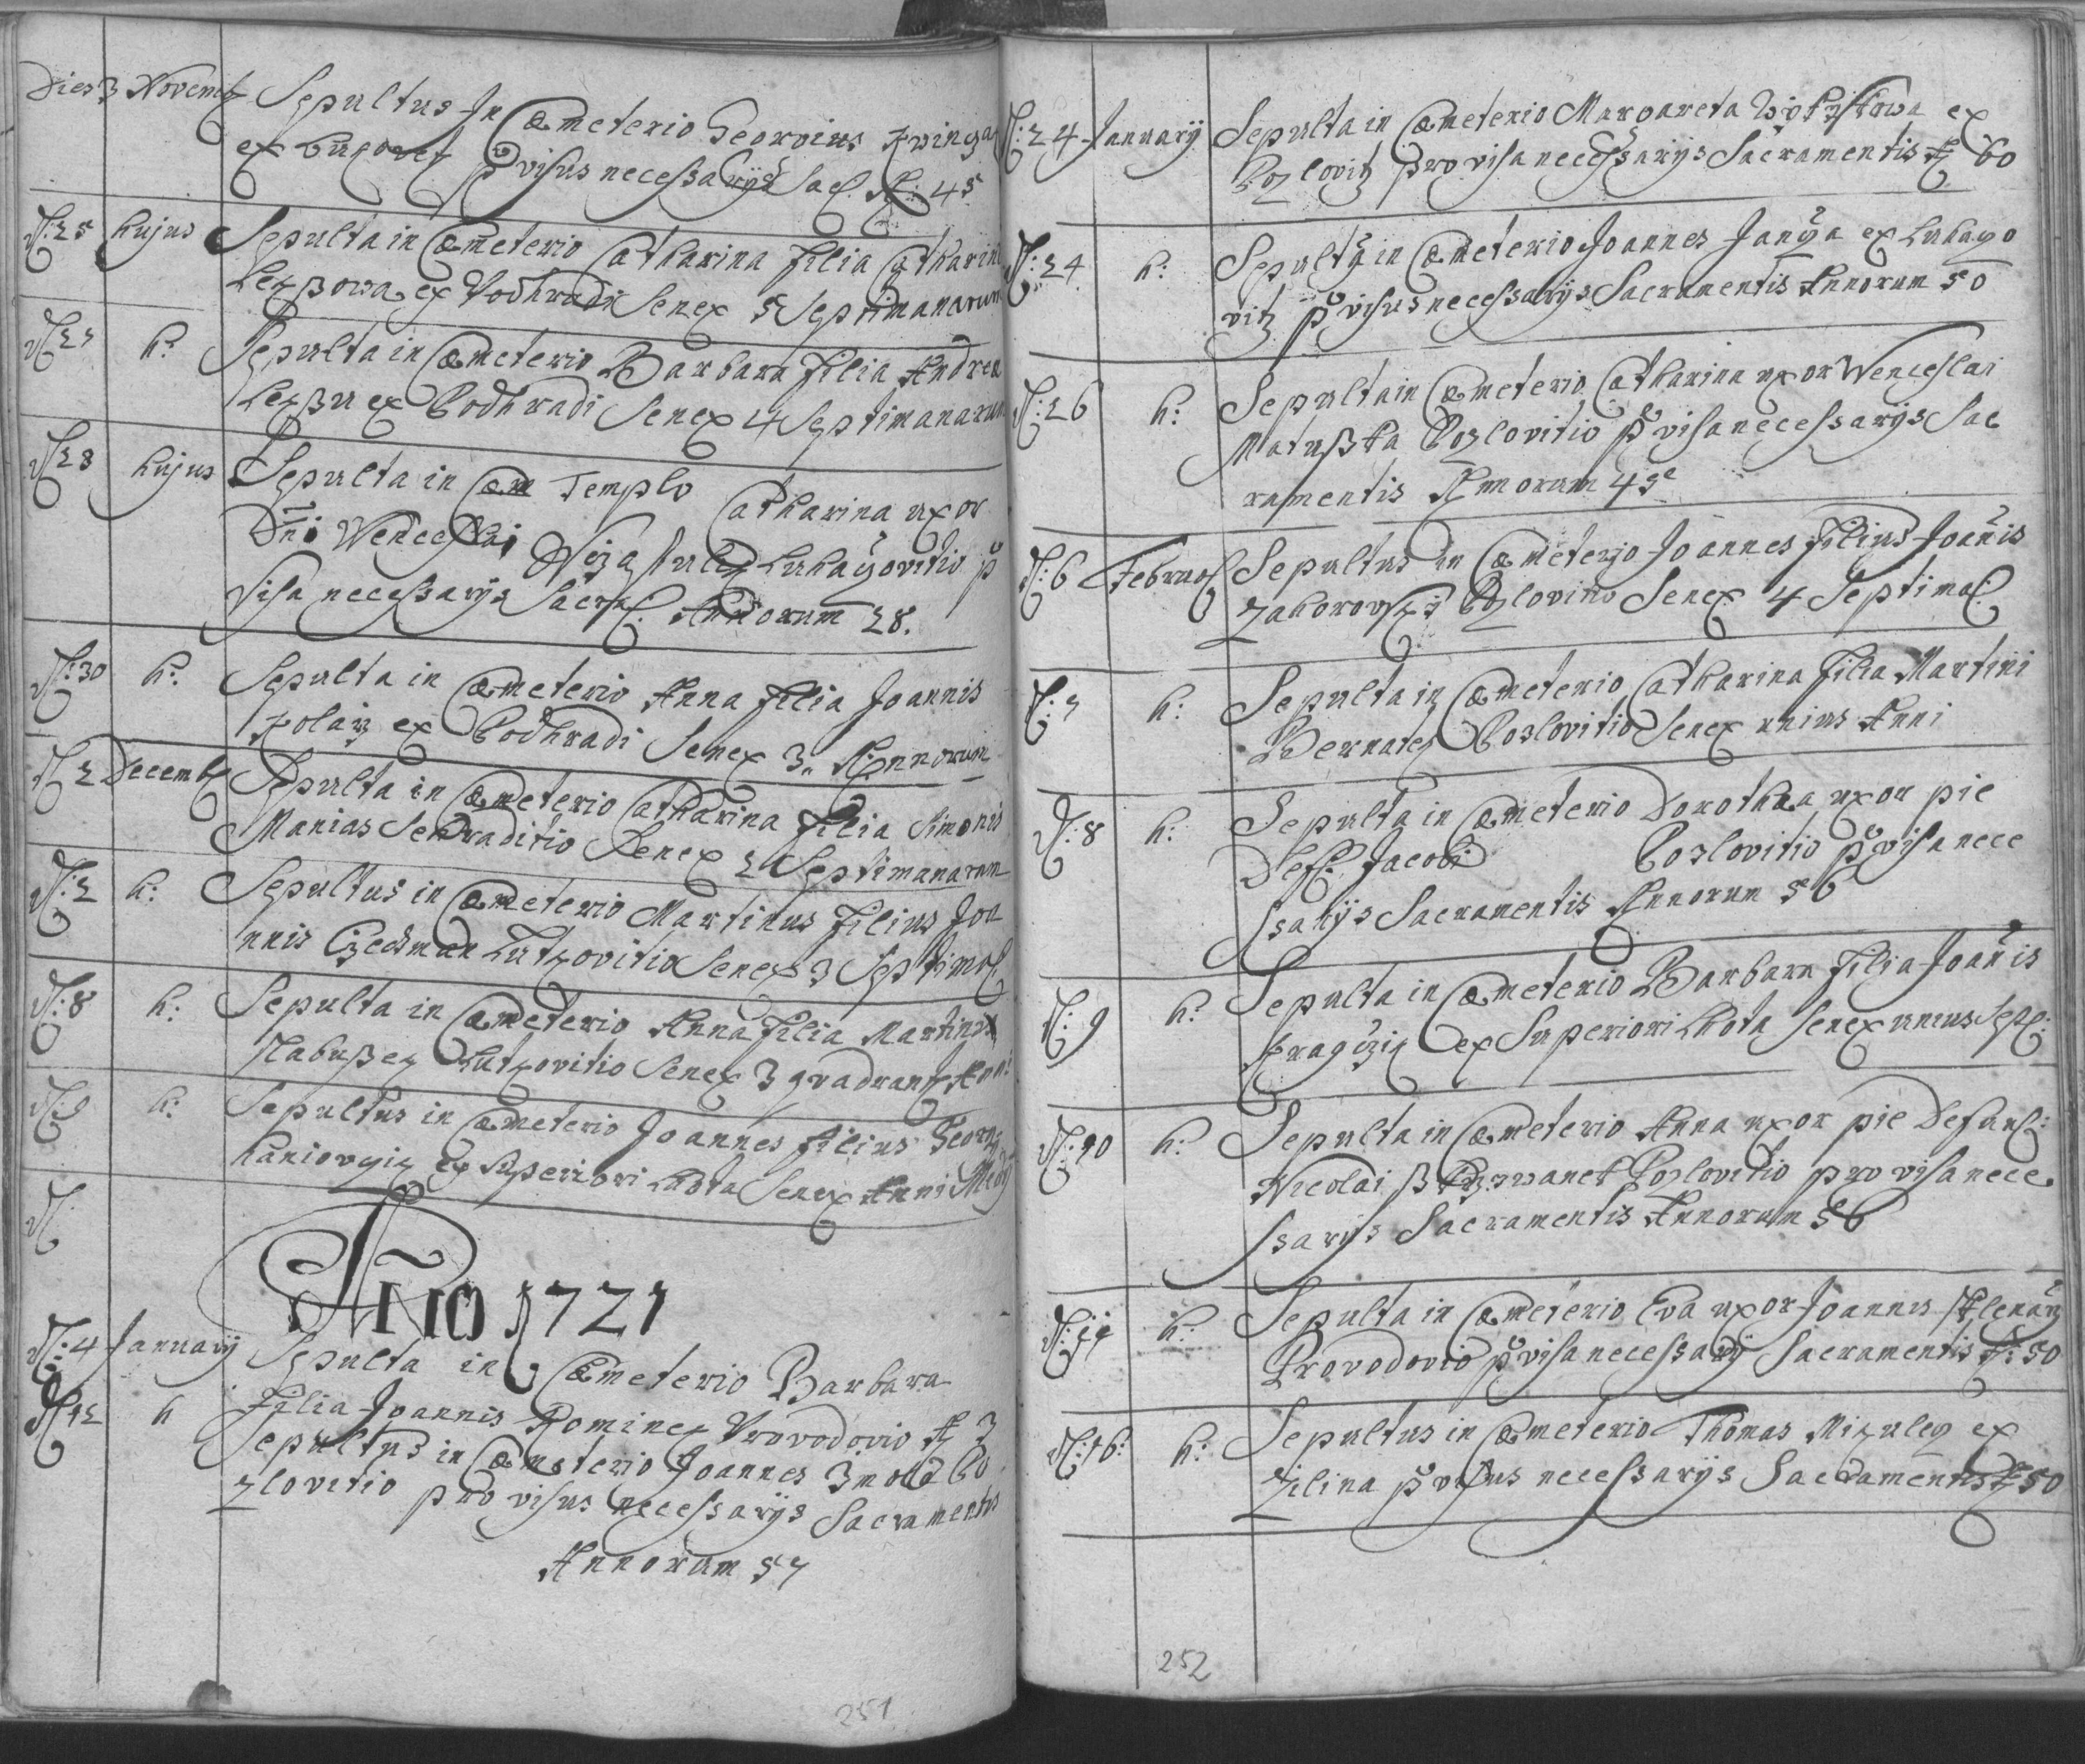 Dies 3 Novemb Sepultus In Cæmeterio Georgius
ex provisus necessarijs Sac A: 45
D: 25 hujus Sepulta in Cæmeterio Catharina Filia Catharin
Lezßowa ex Podhradi Senex 5 Septimanarum
h: Sepulta in Cæmeterio Barbara Filia Andrea
Lezßu ex Podhradi Senex 4 Septimanarum
D 28 hujus Sepulta in Cæm Templo Catharina uxor
Dni Wenceslai Luhaczovitio p
visa necessarijs Sacra: Annorum 28.
D: 30 h: Sepulta in Cæmeterio Anna Filia Joannis
Kolarz ex Podhradi Senex 3 Annorum
D 2 Decemb Sepulta in Cæmeterio Catharina Filia Simonis
Manias Sehraditio Senex 2 Septimanarum
D: 2 h: Sepultus in Cæmeterio Martinus Filius Joa
nnis Lutkovitio Senex 3 Septima
D: 8 h: Sepulta in Cæmeterio Anna Filia Martini
Lutkovitio Senex 3 qvadrant Anni
D: 9 h: Sepultus in Cæmeterio Joannes filius Georg
ex Superiori Lhota Senex Anni Medij
D:
Año 1721
D: 4 Januarij Sepulta in Cæmeterio Barbara
Filia Joannis Rominez Provodovio A 3
D 12 h Sepultus in Cæmeterio Joannes Po
zlovitio provisus necessarijs Sacramentis
Annorum 57
251
D: 24 Januarij Sepulta in Cæmeterio Margareta ex
Pozlovitz provisa necessarijs Sacramentis A 60
D: 24 h: Sepultg in Cæmeterio Joannes Janÿa ex Luhaczo
vitz pvisus necessarijs Sacramentis Annorum 50
D: 26 h: Sepulta in Cæmeterio Catharina uxor Wenceslai
Matußka Pozlovitio pvisa necessarijs Sac
ramentis Annorum 45
D: 6 Februa Sepultus in Cæmeterio Joannes Filius Joañis
Zahorowsky Pozlovitio Senex 4 Septima:
D: 7 h: Sepulta in Cæmeterio Catharina Filia Martini
Bernatez Pozlovitio Senex unius Anni
D: 8 h: Sepulta in Cæmeterio Dorothea uxor pie
Def: Jacobi Pozlovitio pvisa nece
ssarijs Sacramentis Annorum 56
D: 9 h: Sepulta in Cæmeterio Barbara Filia Joañis
ex Superiori Lhota Senex unius Sep:
D: 10 h: Sepulta in Cæmeterio Anna uxor pie Defun:
Nicolai Pozlovitio provisa nece
ssarijs Sacramentis Annorum 56
D: 14 h: Sepulta in Cæmeterio Eva uxor Joannis
Provodovio pvisa necessarij Sacramentis A: 50
D: 16: h: Sepultus in Cæmeterio Thomas Mizuleg ex
Zilina pvisus necessarijs Sacramentis A 50
252